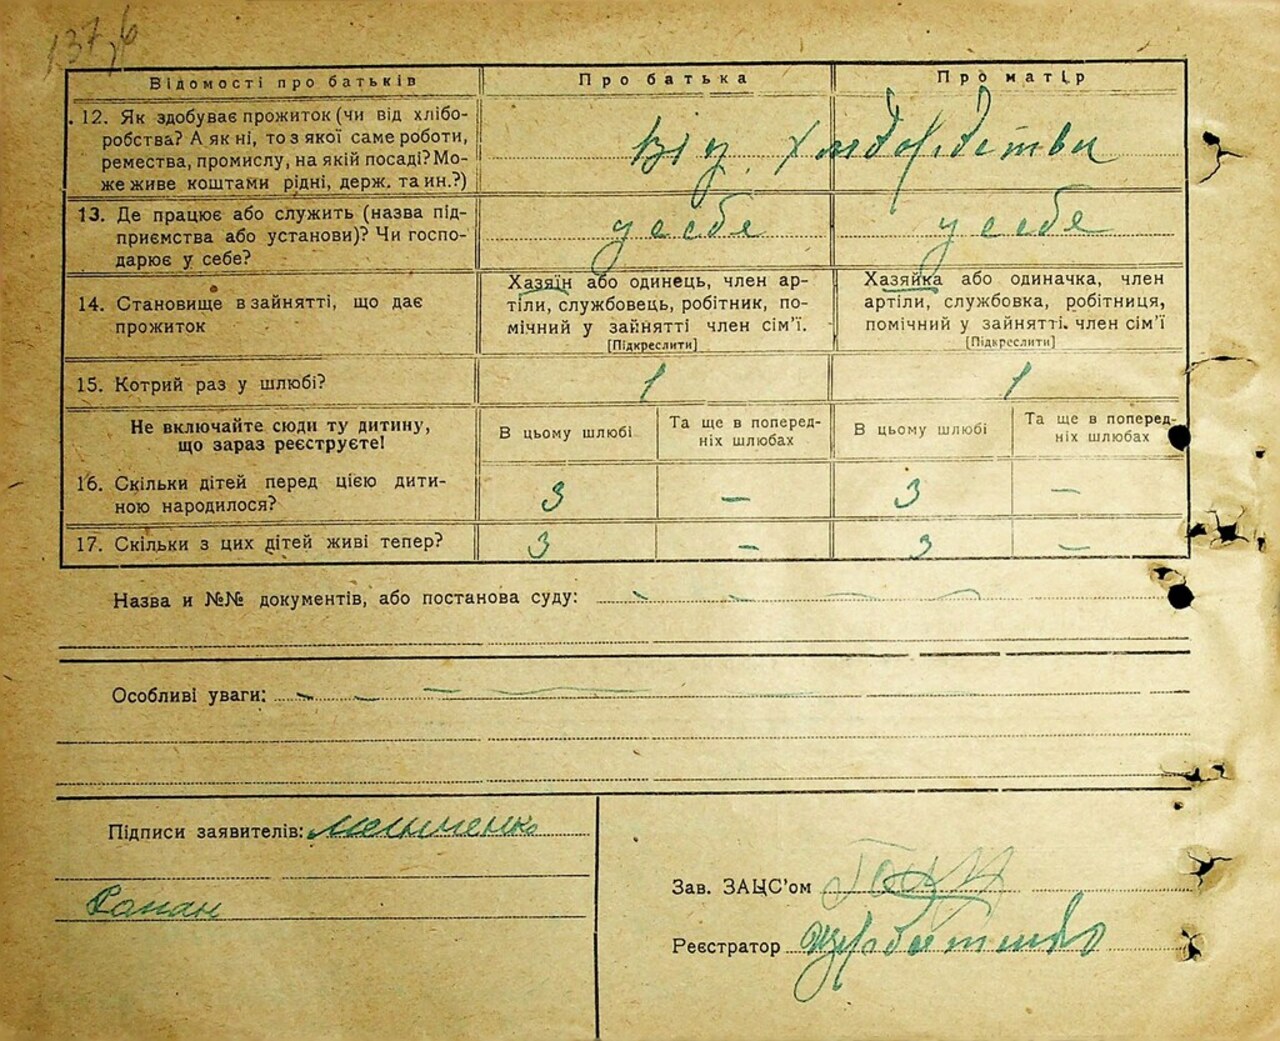 137,б
Відомості про батьків
Про батька
Про матір
12. Як здобуває прожиток (чи від хлібо-
робства? А як ні, то з якої саме роботи,
ремества, промислу, на якій посаді? Мо-
же живе коштами рідні, держ. та ин.?)
від хліборобства
13. Де працює або служить (назва під-
приємства або установи)? Чи госпо-
дарює у себе?
у себе
у себе
14. Становище в зайнятті, що дає
прожиток
Хазяїн або одинець, член ар-
тіли, службовець, робітник, по-
мічний у зайнятті член сім'ї.
[Підкреслити]
Хазяйка або одиначка, член
артіли, службовка, робітниця,
помічний у зайнятті. член сім'ї
[Підкреслити]
15. Котрий раз у шлюбі?
1
1
Не включайте сюди ту дитину,
що зараз реєструєте!
В цьому шлюбі
Та ще в поперед-
ніх шлюбах
В цьому шлюбі
Та ще в поперед-
ніх шлюбах
16. Скільки дітей перед цією дити-
ною народилося?
3
–
3
–
17. Скільки з цих дітей живі тепер?
3
–
3
–
Назва и №№ документів, або постанова суду:
Особливі уваги:
Підписи заявителів:
Зав. ЗАЦС'ом
Реєстратор